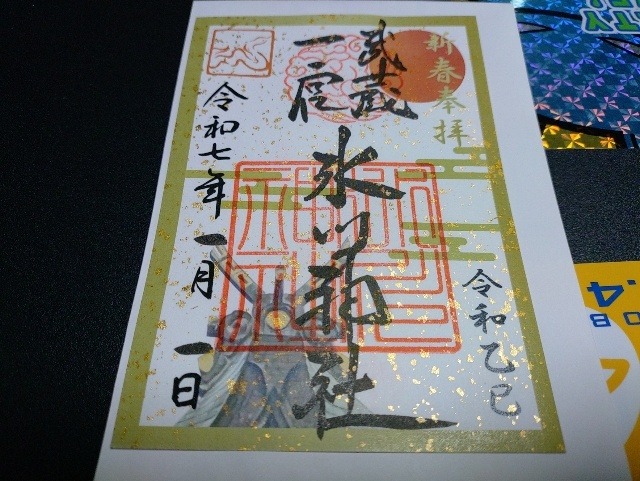 新春奉拝
武蔵
一宮
氷川神社
令和七年一月一日
令和乙巳